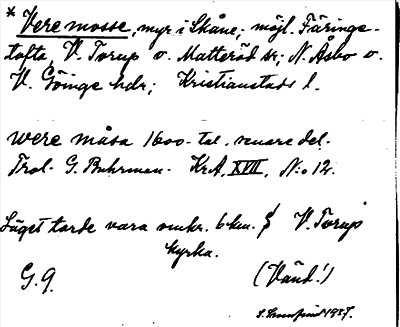 * Vere mosse, myr i Skåne; möjl. Färinge-
tofta, V. Torup o. Matteröd sr; N. Åsbo o.
V. Göinge hdr; Kristianstads l.
were måsa 1600-tal. senare del.
Trol. G. Buhrman. KrA, XVII, N:o 12.
Läget torde vara omkr. 6 km. V. Torup
kyrka.
G. 9. (Vänd!)
1937.